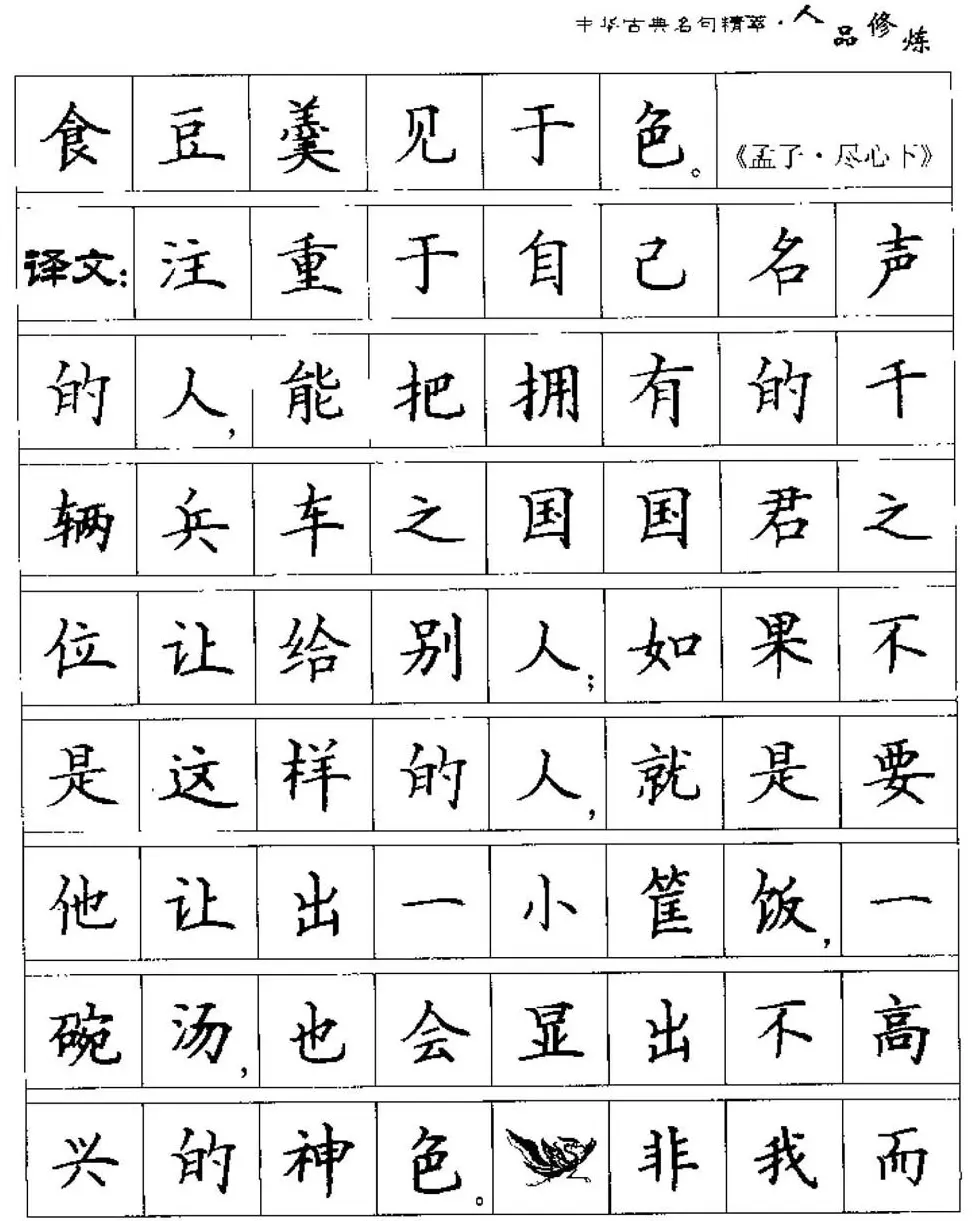 中华古典名句精萃·人品修炼
食豆羹见于色。《孟子·尽心下》
译文:注重于自己名声
的人,能把拥有的千
辆兵车之国国君之
位让给别人;如果不
是这样的人,就是要
他让出一小筐饭,一
碗汤,也会显出不高
兴的神色。非我而